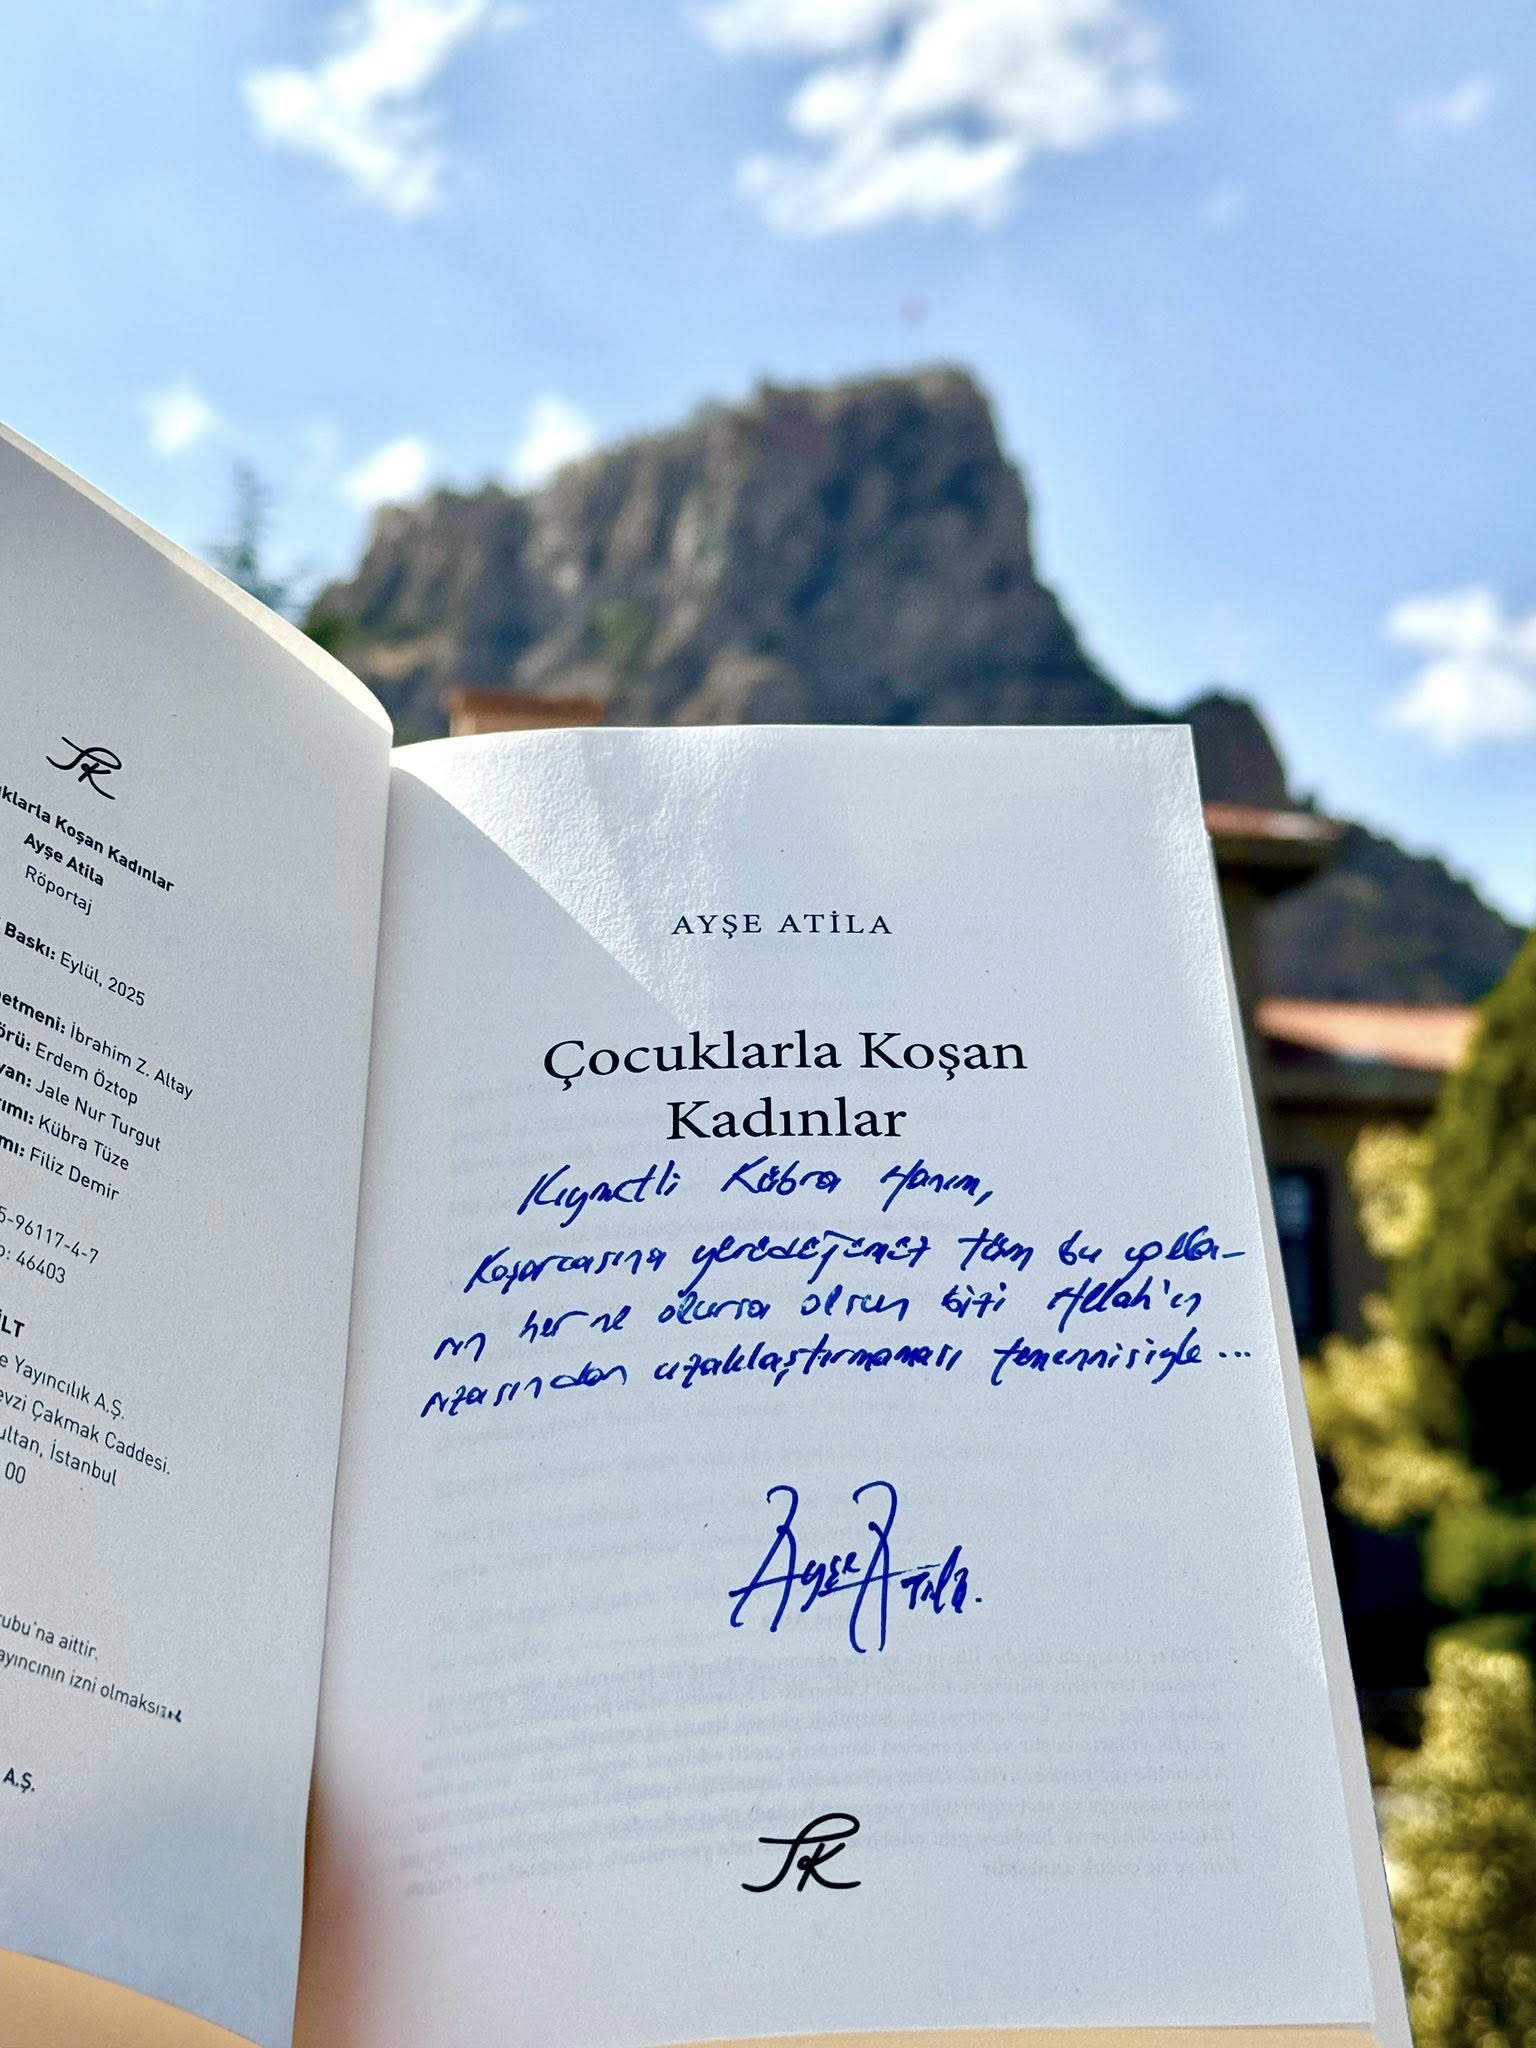 Koşan Kadınlar
Ayşe Atila
Röportaj
Baskı: Eylül, 2025
İbrahim Z. Altay
Erdem Öztop
Jale Nur Turgut
Kübra Tüze
Filiz Demir
5-96117-4-7
46403
Yayıncılık A.Ş.
Çakmak Caddesi.
İstanbul
00
aittir.
izni
A.Ş.
AYŞE ATİLA
Çocuklarla Koşan
Kadınlar
Kıymetli Kübra Hanım,
Koşarcasına yürüdüğümüz tüm bu yolla-
rın her ne olursa olsun bizi Allah'ın
rızasından uzaklaştırmaması temennisiyle...
Ayşe Atila.